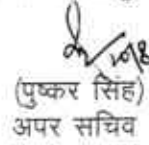 (पुष्कर सिंह)
अपर सचिव